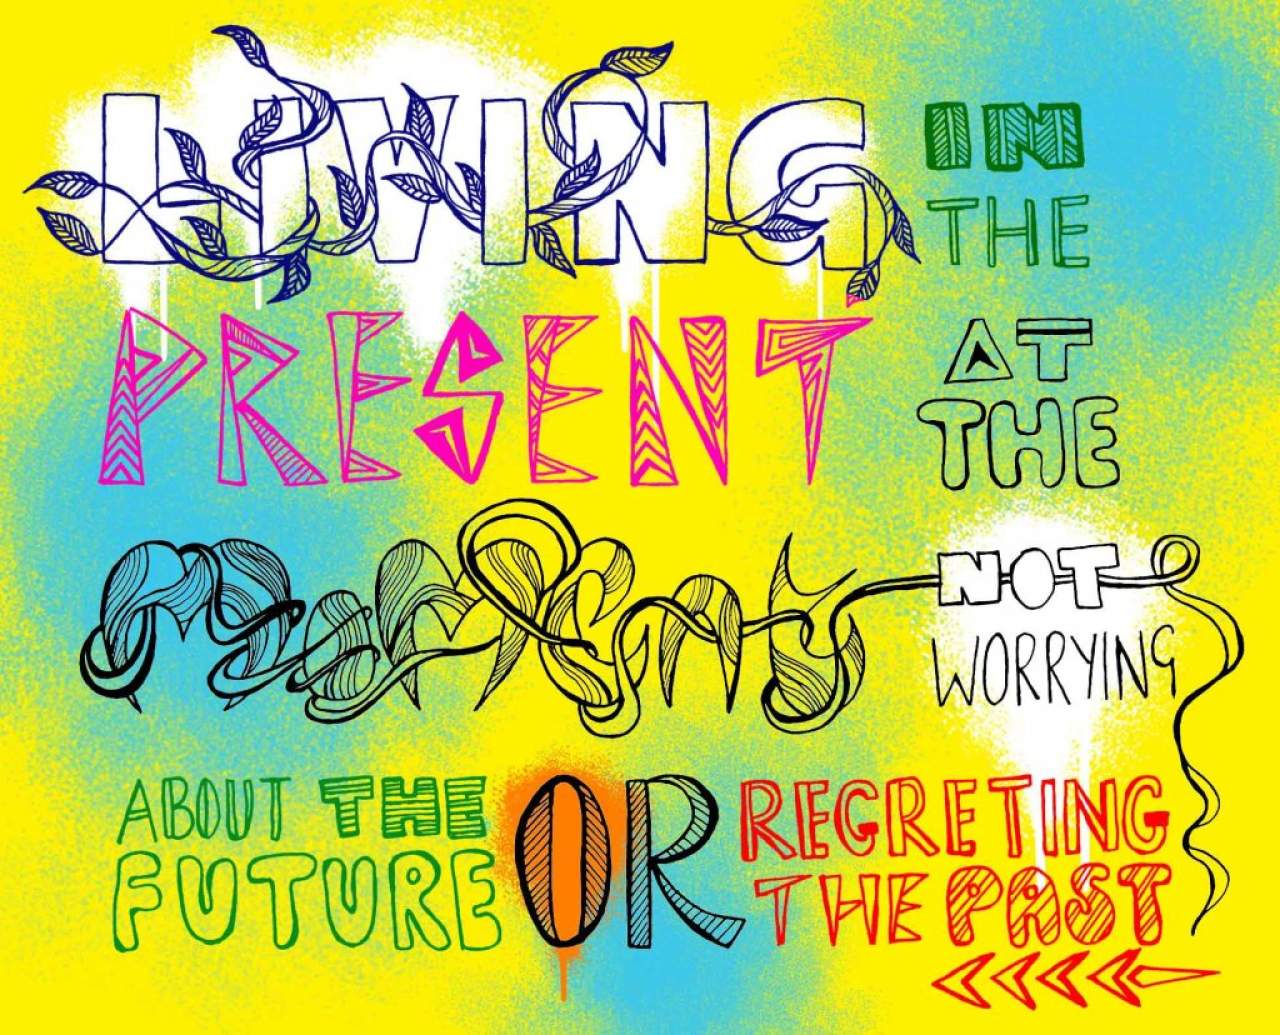 LIVING
IN
THE
PRESENT
AT
THE
moment
NOT
WORRYING
ABOUT THE
FUTURE
OR
REGRETING
THE PAST